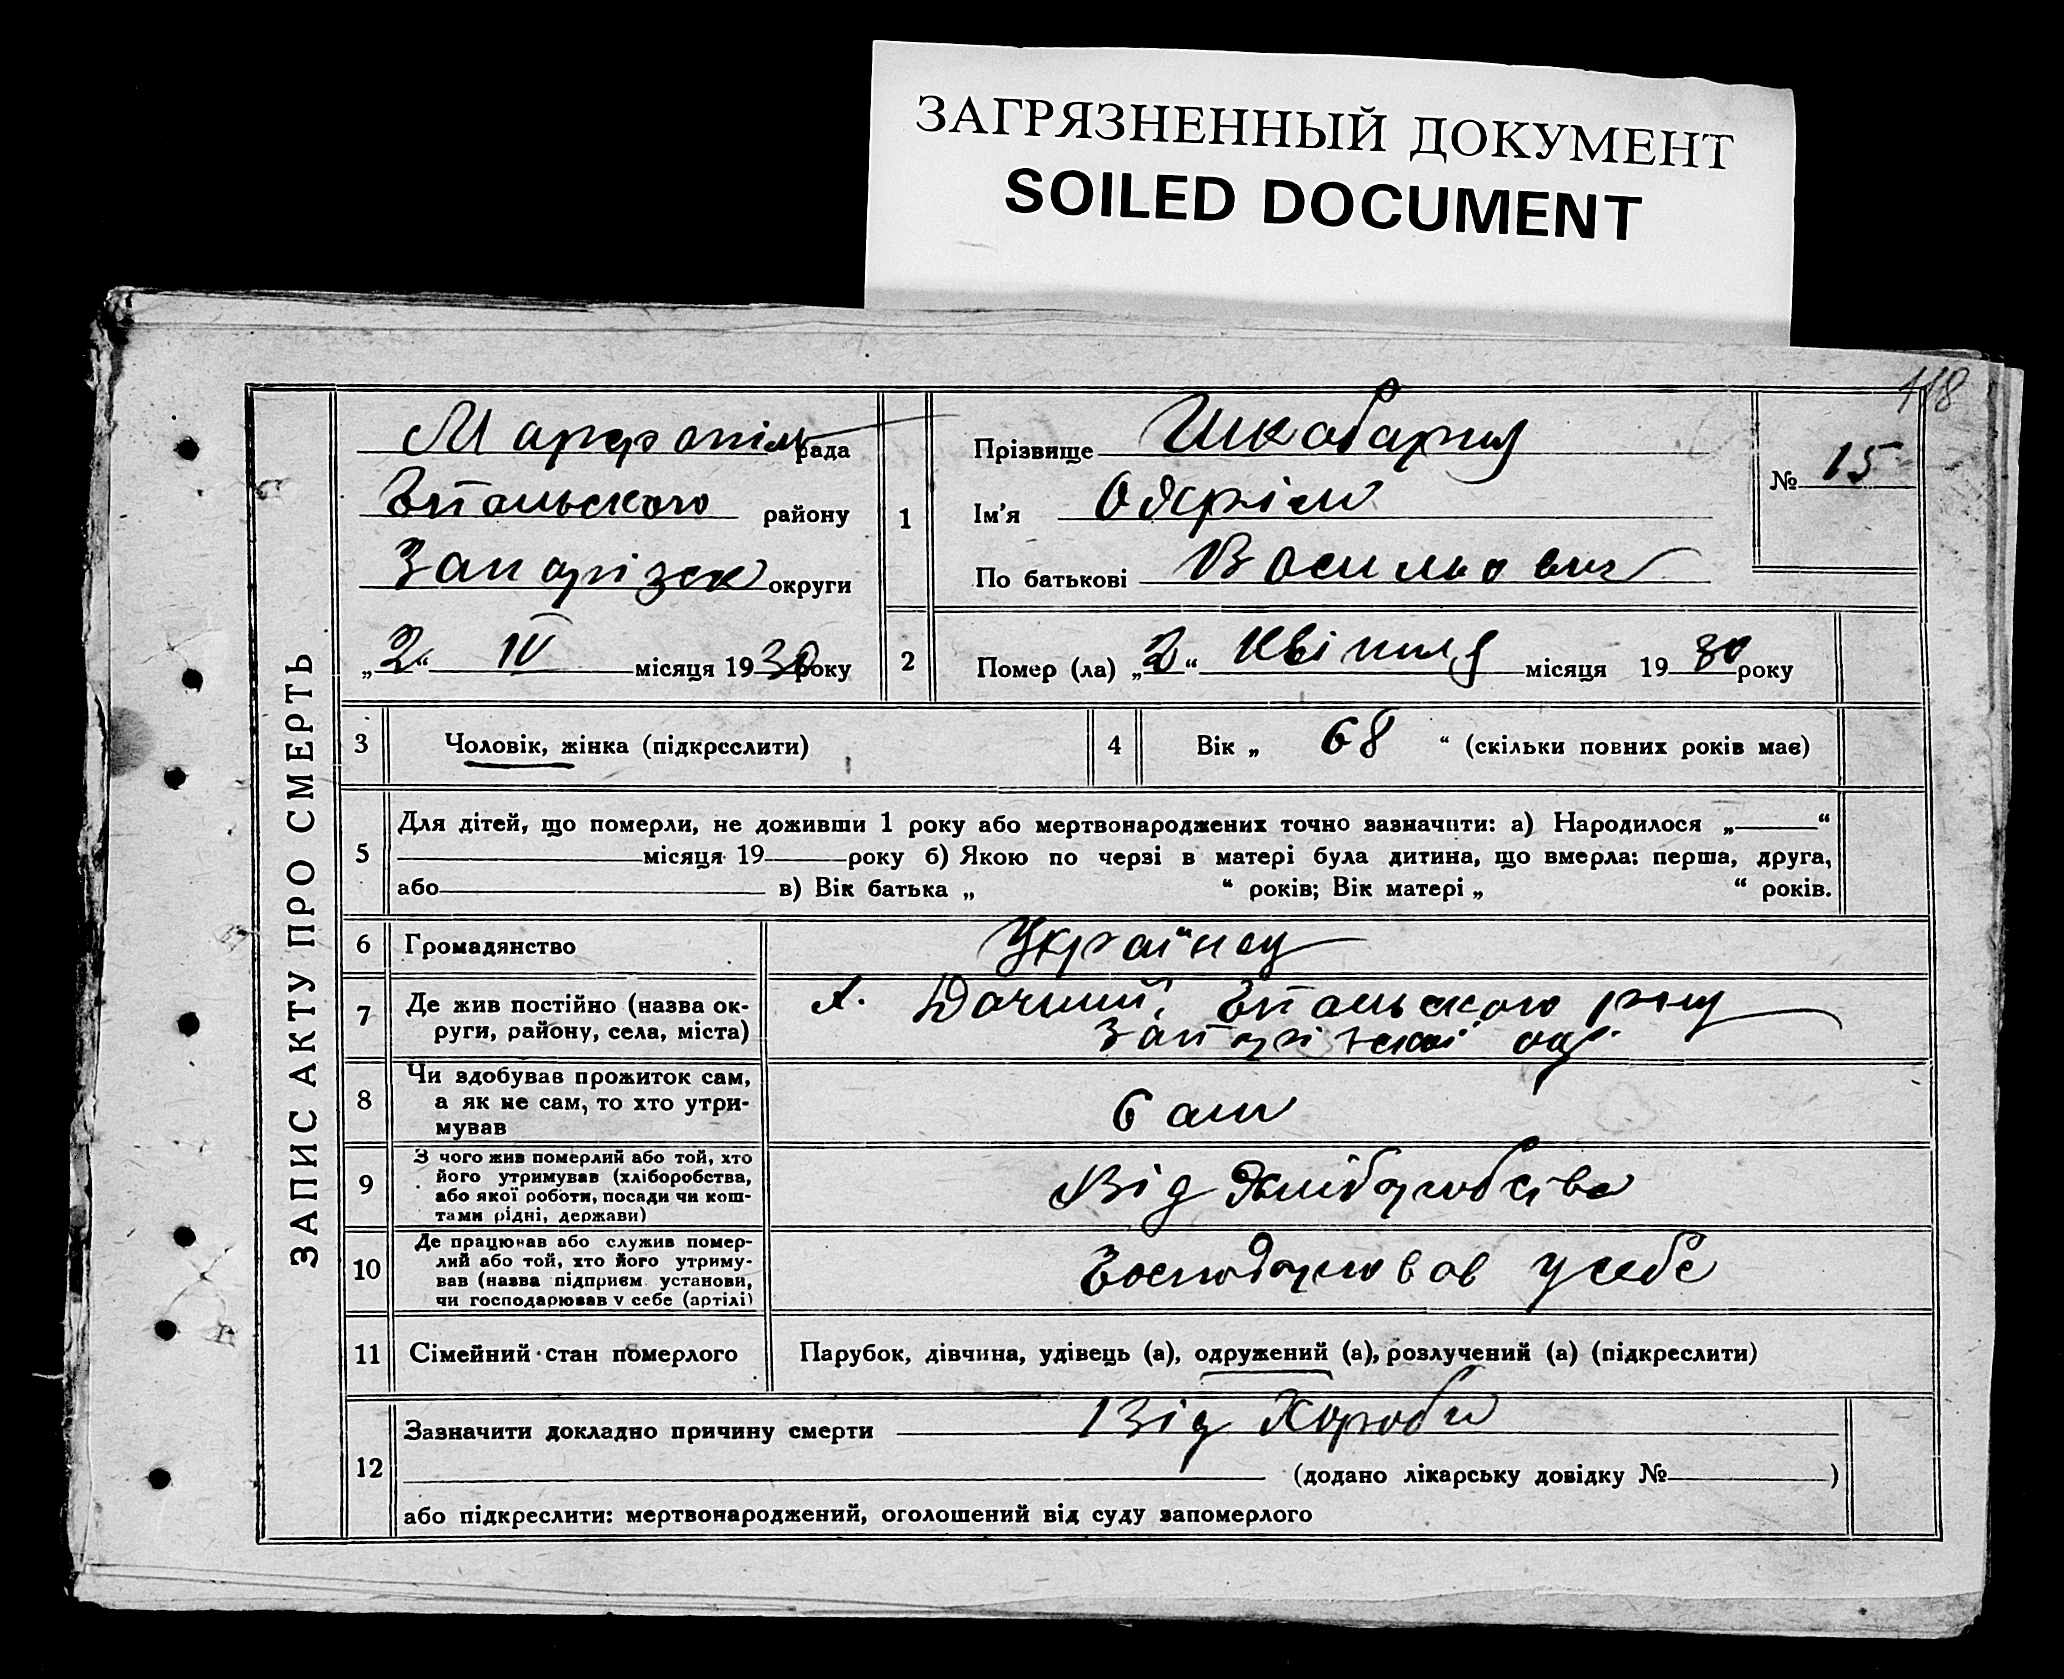 ЗАГРЯЗНЕННЫЙ ДОКУМЕНТ
SOILED DOCUMENT
118
ЗАПИС АКТУ ПРО СМЕРТЬ
Марфопіль рада
району
Запоріжск округи
„2“ IV місяця 1930 року
1
Прізвище
Ім'я
По батькові Васильович
№ 15
2
Помер (ла) „2“ Квітня місяця 1930 року
3
Чоловік, жінка (підкреслити)
4
Вік „ 68 “ (скільки повних років має)
5
Для дітей, що померли, не доживши 1 року або мертвонароджених точно зазначити: а) Народилося „ “
місяця 19 року б) Якою по черзі в матері була дитина, що вмерла: перша, друга,
або в) Вік батька „ “ років; Вік матері „ “ років.
6
Громадянство
Українец
7
Де жив постійно (назва ок-
руги, району, села, міста)
х.
8
Чи здобував прожиток сам,
а як не сам, то хто утри-
мував
Сам
9
З чого жив померлий або той, хто
його утримував (хліборобства,
або якої роботи, посади чи кош-
тами рідні, держави)
Від хліборобства
10
Де працював або служив помер-
лий або той, хто його утриму-
вав (назва підприєм. установи,
чи господарював у себе (артілі)
Господарював у себе
11
Сімейний стан померлого
Парубок, дівчина, удівець (а), одружений (а), розлучений (а) (підкреслити)
12
Зазначити докладно причину смерти Від Хороби
(додано лікарську довідку № )
або підкреслити: мертвонароджений, оголошений від суду запомерлого